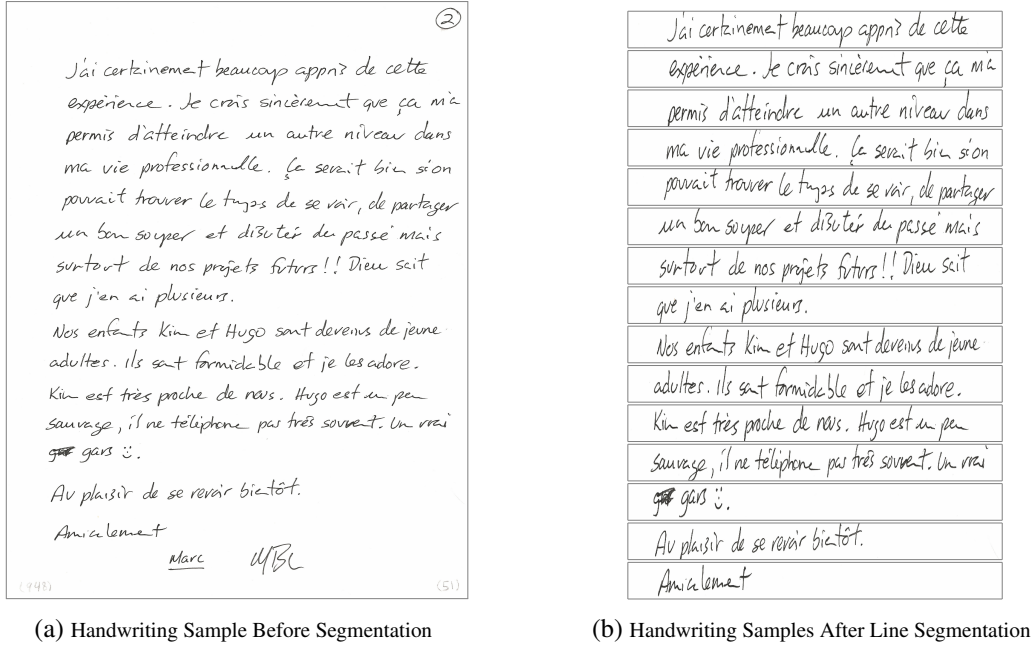 2
J'ai certainement beaucoup appris de cette
expérience. Je crois sincèrement que ça m'a
permis d'atteindre un autre niveau dans
ma vie professionnelle. Ça serait bien si on
pouvait trouver le temps de se voir, de partager
un bon souper et discuter du passé mais
surtout de nos projets futurs!! Dieu sait
que j'en ai plusieurs.
Nos enfants Kim et Hugo sont devenus de jeune
adultes. Ils sont formidable et je les adore.
Kim est très proche de nous. Hugo est un peu
sauvage, il ne téléphone pas très souvent. Un vrai
gars
Au plaisir de se revoir bientôt.
Amicalement
Marc MBC
(748) (51)
(a) Handwriting Sample Before Segmentation
J'ai certainement beaucoup appris de cette
expérience. Je crois sincèrement que ça m'a
permis d'atteindre un autre niveau dans
ma vie professionnelle. Ça serait bien si on
pouvait trouver le temps de se voir, de partager
un bon souper et discuter du passé mais
surtout de nos projets futurs!! Dieu sait
que j'en ai plusieurs.
Nos enfants Kim et Hugo sont devenus de jeune
adultes. Ils sont formidable et je les adore.
Kim est très proche de nous. Hugo est un peu
sauvage, il ne téléphone pas très souvent. Un vrai
gars
Au plaisir de se revoir bientôt.
Amicalement
(b) Handwriting Samples After Line Segmentation